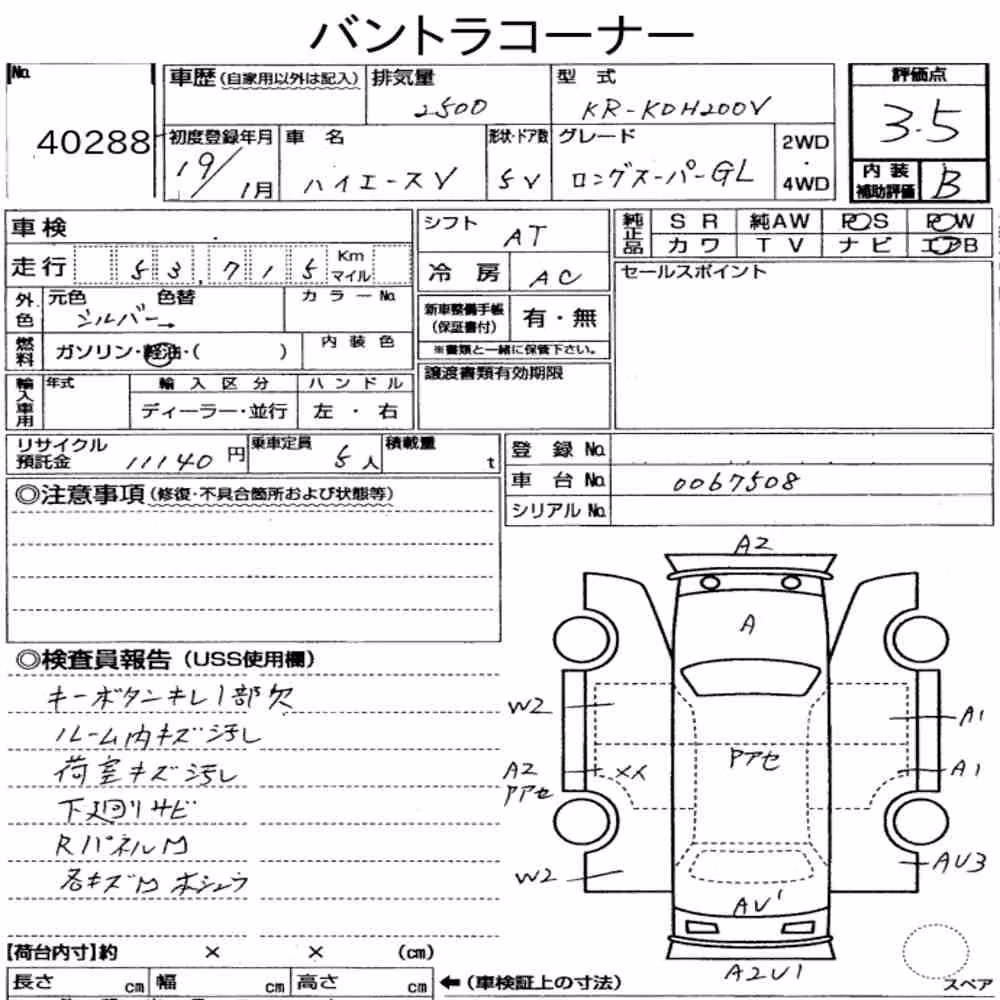 バントラコーナー
No. 40288
車歴 (自家用以外は記入)
排気量 2500
型式 KR-KDH200V
評価点 3.5
初度登録年月 19/1月
車名 ハイエースV
形状・ドア数 5V
グレード ロングスーパーGL
2WD・4WD
内装補助評価 B
車検
走行 53,715 Km マイル
外色 元色 色替 シルバー→
カラーNo.
燃料 ガソリン・軽油・( )
内装色
輸入車用 年式 輸入区分 ハンドル
ディーラー・並行 左・右
シフト AT
冷房 AC
新車整備手帳(保証書付) 有・無
※書類と一緒に保管下さい。
譲渡書類有効期限
純正品 SR 純AW PS PW
カワ TV ナビ エアB
セールスポイント
リサイクル預託金 11140円
乗車定員 5人
積載量 t
登録No.
車台No. 0067508
シリアルNo.
◎注意事項 (修復・不具合箇所および状態等)
◎検査員報告 (USS使用欄)
キーボタンキレ1部欠
ルーム内キズ汚し
荷室キズ汚し
下廻リサビ
RパネルM
各キズM ホシュウ
A2
A
W2
A1
Pアセ
A2
Pアセ
XX
A1
W2
AU3
AU1
A2U1
【荷台内寸】約 × × (cm)
長さ cm 幅 cm 高さ cm ←(車検証上の寸法)
スペア